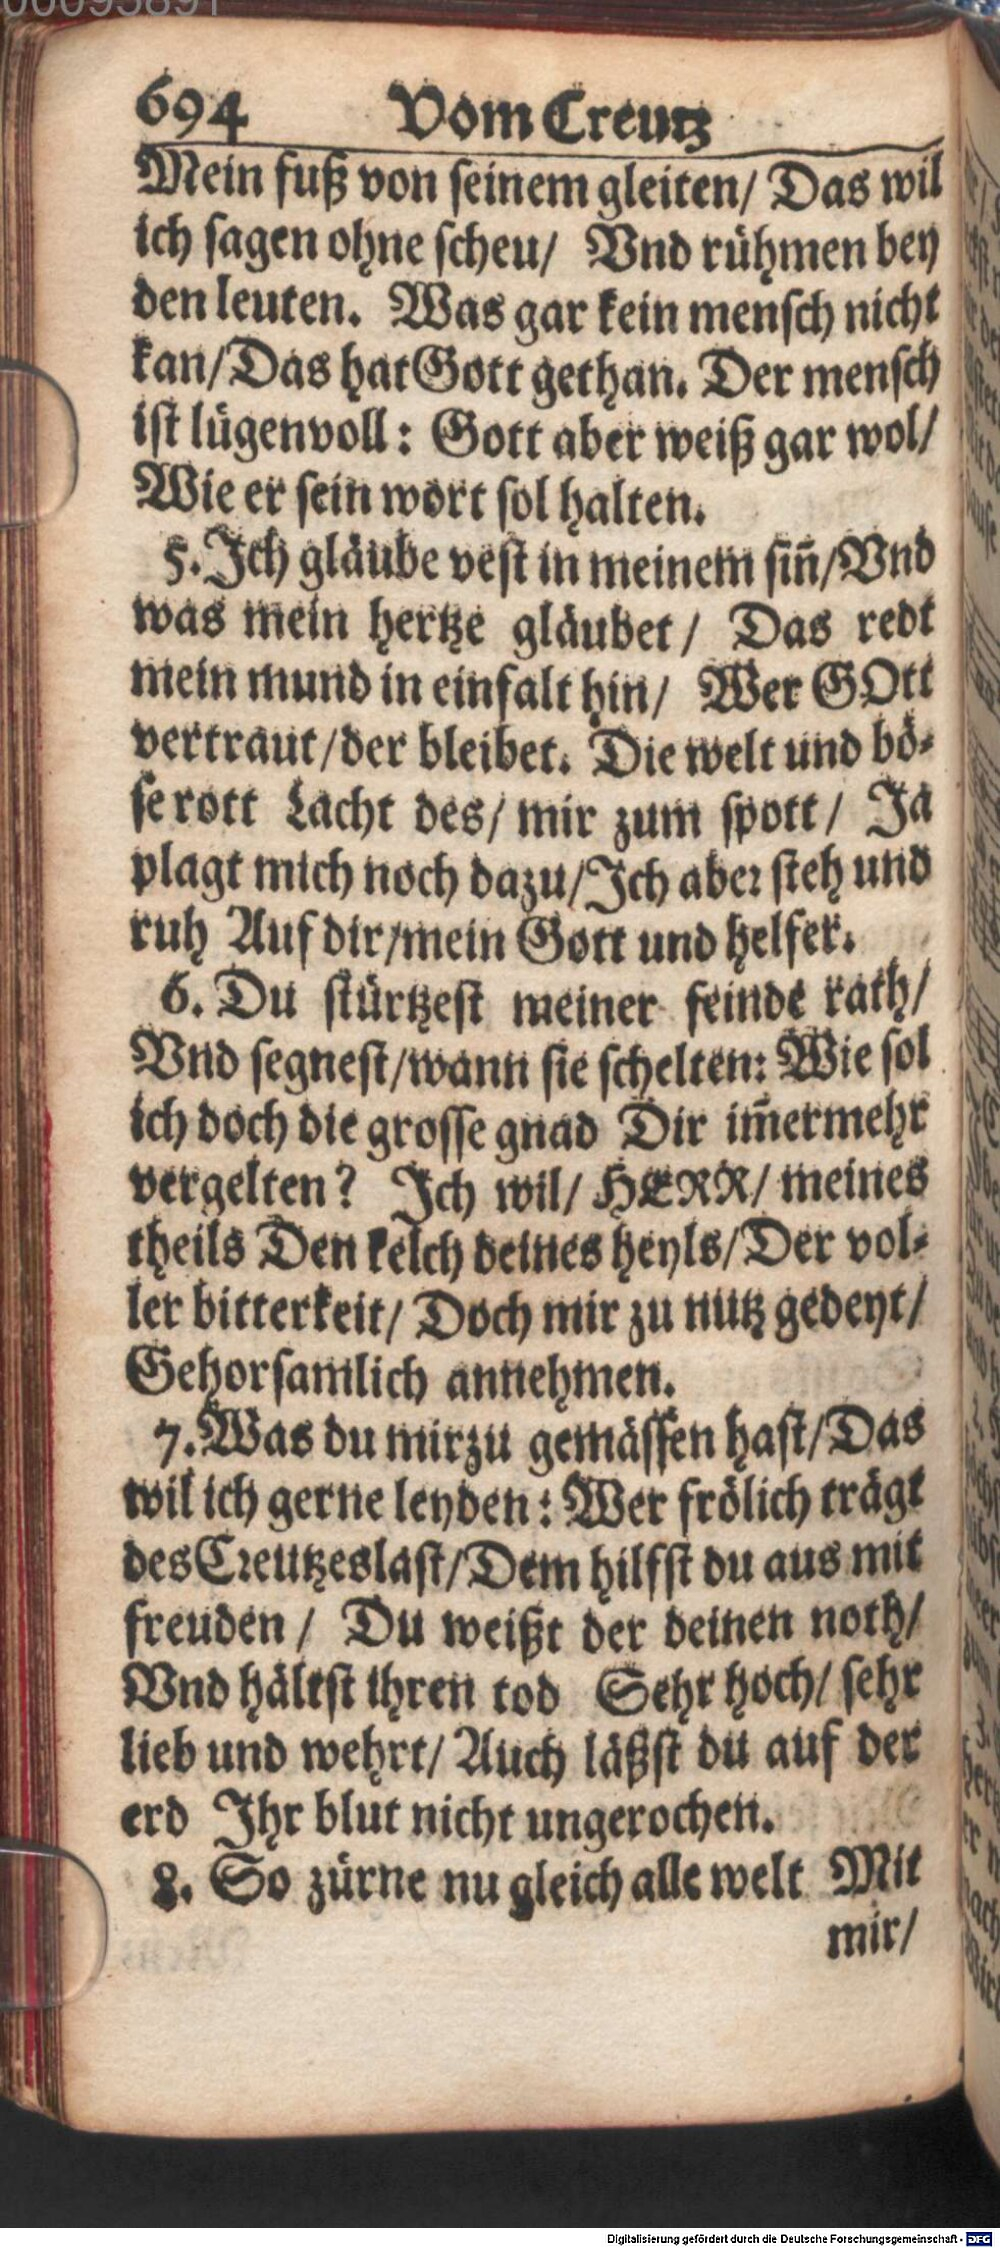 00095891
694 Vom Creutz
Mein fuß von seinem gleiten/ Das wil
ich sagen ohne scheu/ Vnd rühmen bey
den leuten. Was gar kein mensch nicht
kan/Das hat Gott gethan. Der mensch
ist lügenvoll: Gott aber weiß gar wol/
Wie er sein wort sol halten.
5. Ich gläube vest in meinem siñ/Vnd
was mein hertze gläubet/ Das redt
mein mund in einfalt hin/ Wer GOtt
vertraut/der bleibet. Die welt und bö-
se rott Lacht des/ mir zum spott/ Ja
plagt mich noch dazu/Ich aber steh und
ruh Auf dir/mein Gott und helfer.
6. Du stürtzest meiner feinde rath/
Vnd segnest/wann sie schelten: Wie sol
ich doch die grosse gnad Dir im̃ermehr
vergelten? Ich wil/ HERR/ meines
theils Den kelch deines heyls/Der vol-
ler bitterkeit/ Doch mir zu nutz gedeyt/
Gehorsamlich annehmen.
7. Was du mir zu gemässen hast/Das
wil ich gerne leyden: Wer frölich trägt
des Creutzes last/Dem hilfst du aus mit
freuden/ Du weißt der deinen noth/
Vnd hältst ihren tod Sehr hoch/ sehr
lieb und wehrt/ Auch läßst du auf der
erd Ihr blut nicht ungerochen.
8. So zürne nu gleich alle welt Mit
mir/
Digitalisierung gefördert durch die Deutsche Forschungsgemeinschaft - DFG